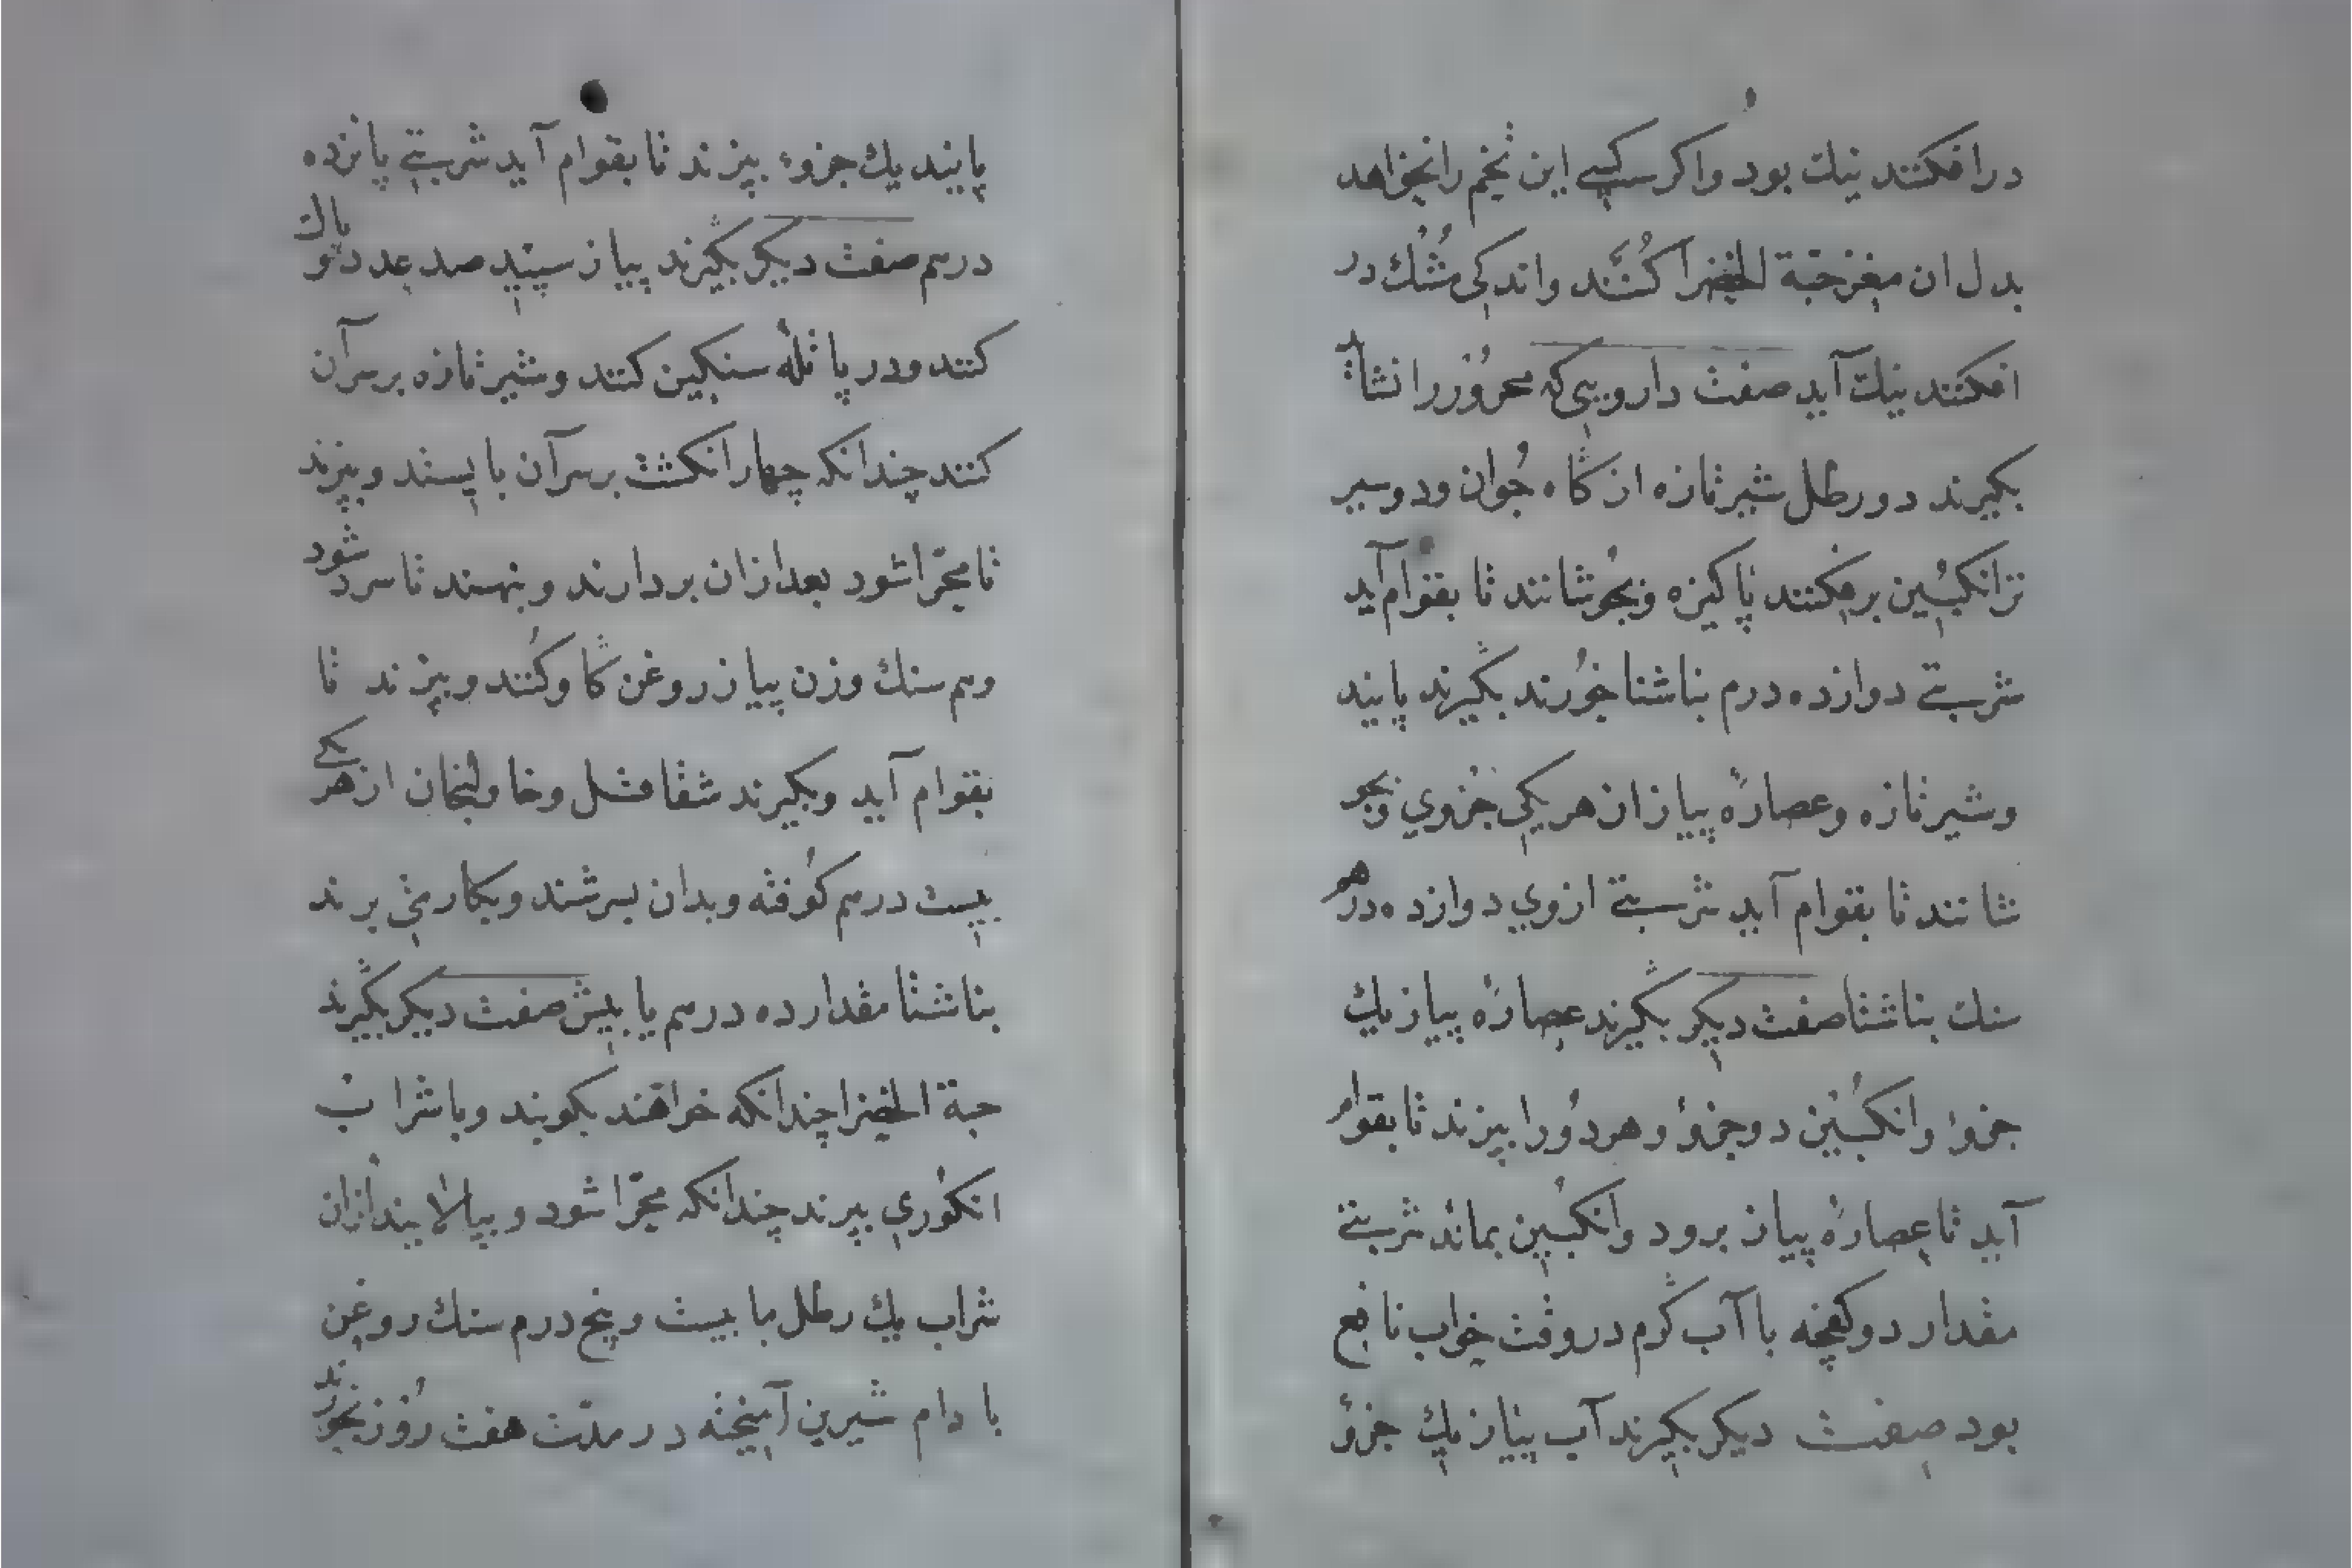 درافکنند نیك بود واکر کسی این تخم رانخواهد
بدل ان مغز حبة الخضرا کنند واندکی مشك در
افکنند نیك آید صفت دارویی که محرور را نشاید
بکیرند دو رطل شیر تازه از کاه جوان ودو سیر
ترانکبین برفکنند پاکیزه وبجوشانند تا بقوام آید
شربتے دوازده درم بناشتا خورند بکیرند پانید
وشیر تازه وعصاره پیاز ان هر یکی جزوی وبجو
شانند تا بقوام آید شربتے ازوی دوازده درهم
سنك بناشتا صفت دیکر بکیرند عصاره پیاز یك
جزؤ وانکبین دو جزؤ وهر دورا بپزند تا بقوام
آید تا عصاره پیاز برود وانکبین بماند شربتے
مقدار دو کفچه با آب کرم در وقت خواب نافع
بود صفت دیکر بکیرند آب پیاز یك جزؤ
پانید یك جزوء بپزند تا بقوام آید شربتے پانزده
درم صفت دیکر بکیرند پیاز سپید صد عدد تو پاك
کنند ودر پاتله سنکین کنند وشیر تازه برسر آن
کنند چندانکه چهار انکشت برسر آن بایستد وبپزند
تا مجرا شود بعد ازان بردارند وبنهند تا سرد شود
وهم سنك وزن پیاز روغن کاو کنند وبپزند تا
بقوام آید وبکیرند شقاقل وخاولنجان از هر یکے
بیست درم کوفته وبدان بسرشند وبکار می برند
بناشتا مقدار ده درم یا بیش صفت دیکر بکیرند
حبة الخضرا چندانکه خواهند بکوبند وبا شراب
انکوری بپزند چندانکه مجرا شود وبپالایند ازان
شراب یك رطل با بیست وپنج درم سنك روغن
بادام شیرین آمیخته در مدت هفت روز بخورند